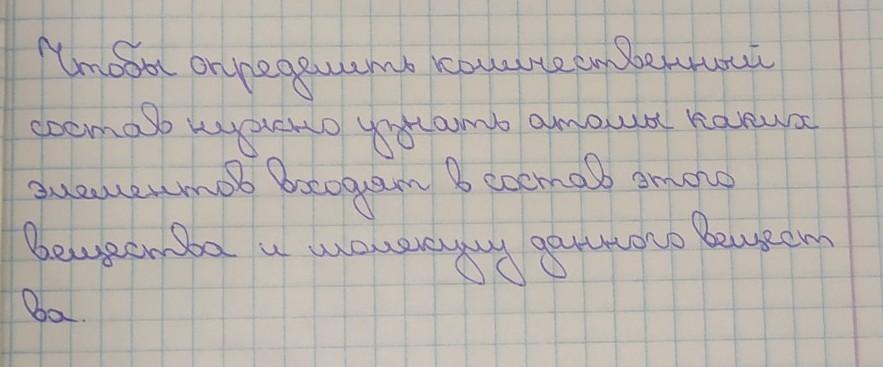 Чтобы определить количественный
состав нужно узнать атомы каких
элементов входят в состав этого
вещества и молекулу данного вещест
ва.